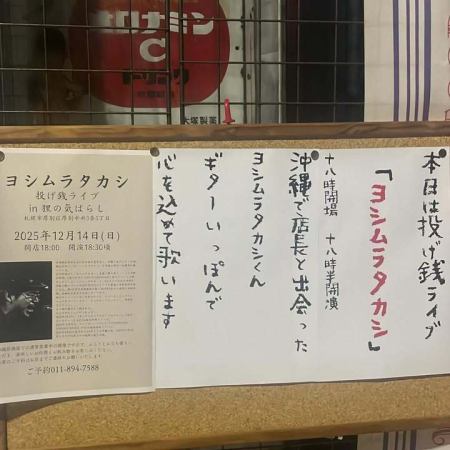 オロナミン
C
ドリンク
大塚製薬
本日は投げ銭ライブ
「ヨシムラタカシ」
十八時開場 十八時半開演
沖縄で店長と出会った
ヨシムラタカシくん
ギターいっぽんで
心を込めて歌います
ヨシムラタカシ
投げ銭ライブ
in 狸の気はらし
札幌市厚別区厚別中央3条5丁目
2025年12月14日(日)
開店18:00 開演18:30頃
ご予約011-894-7588